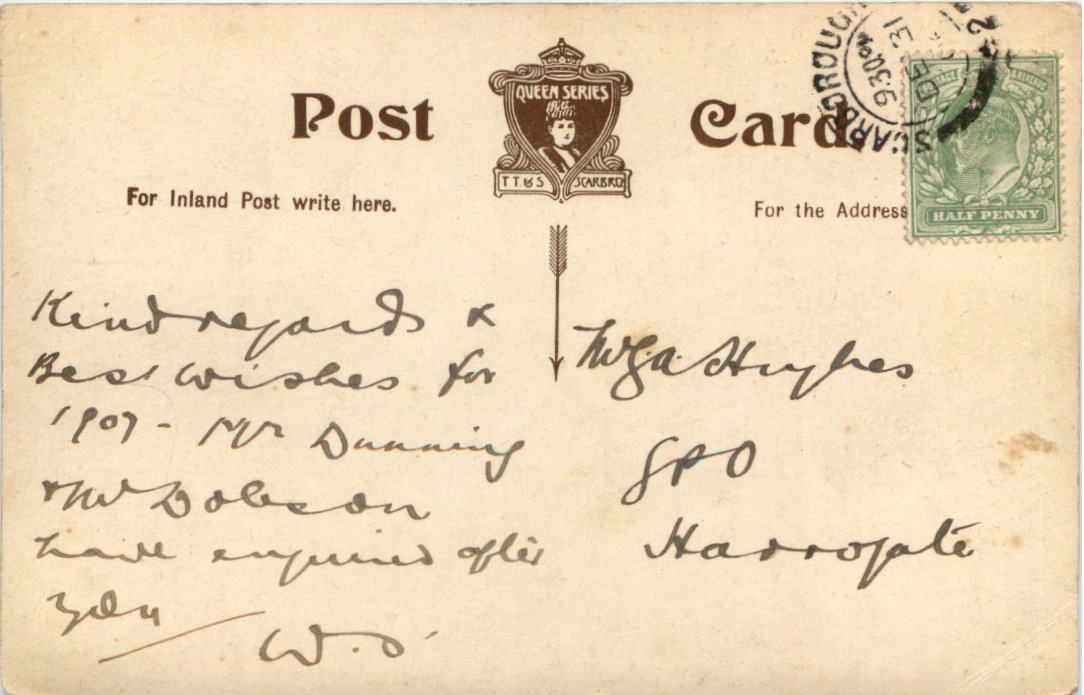 Post Card
QUEEN SERIES
T.T.&S SCARBRO
For Inland Post write here.
For the Address
SCARBOROUGH
9.30 PM
31
HALF PENNY
Kind regards &
Best wishes for
1907 - Mr Dunning
& Mr Dobson
have enquired after
you
W.
Hughes
GPO
Harrogate